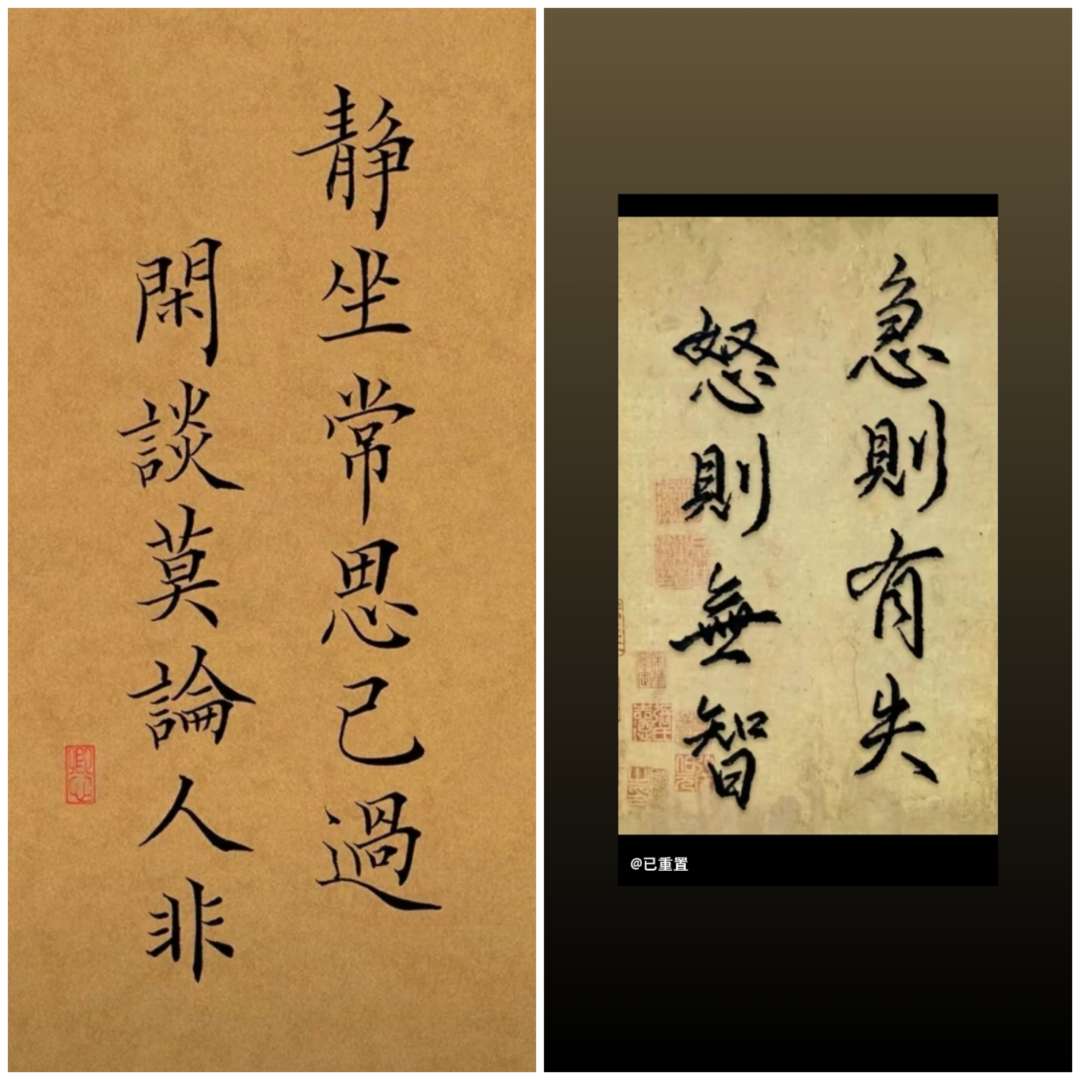 静坐常思己過
閑談莫論人非
急則有失
怒則無智
@已重置